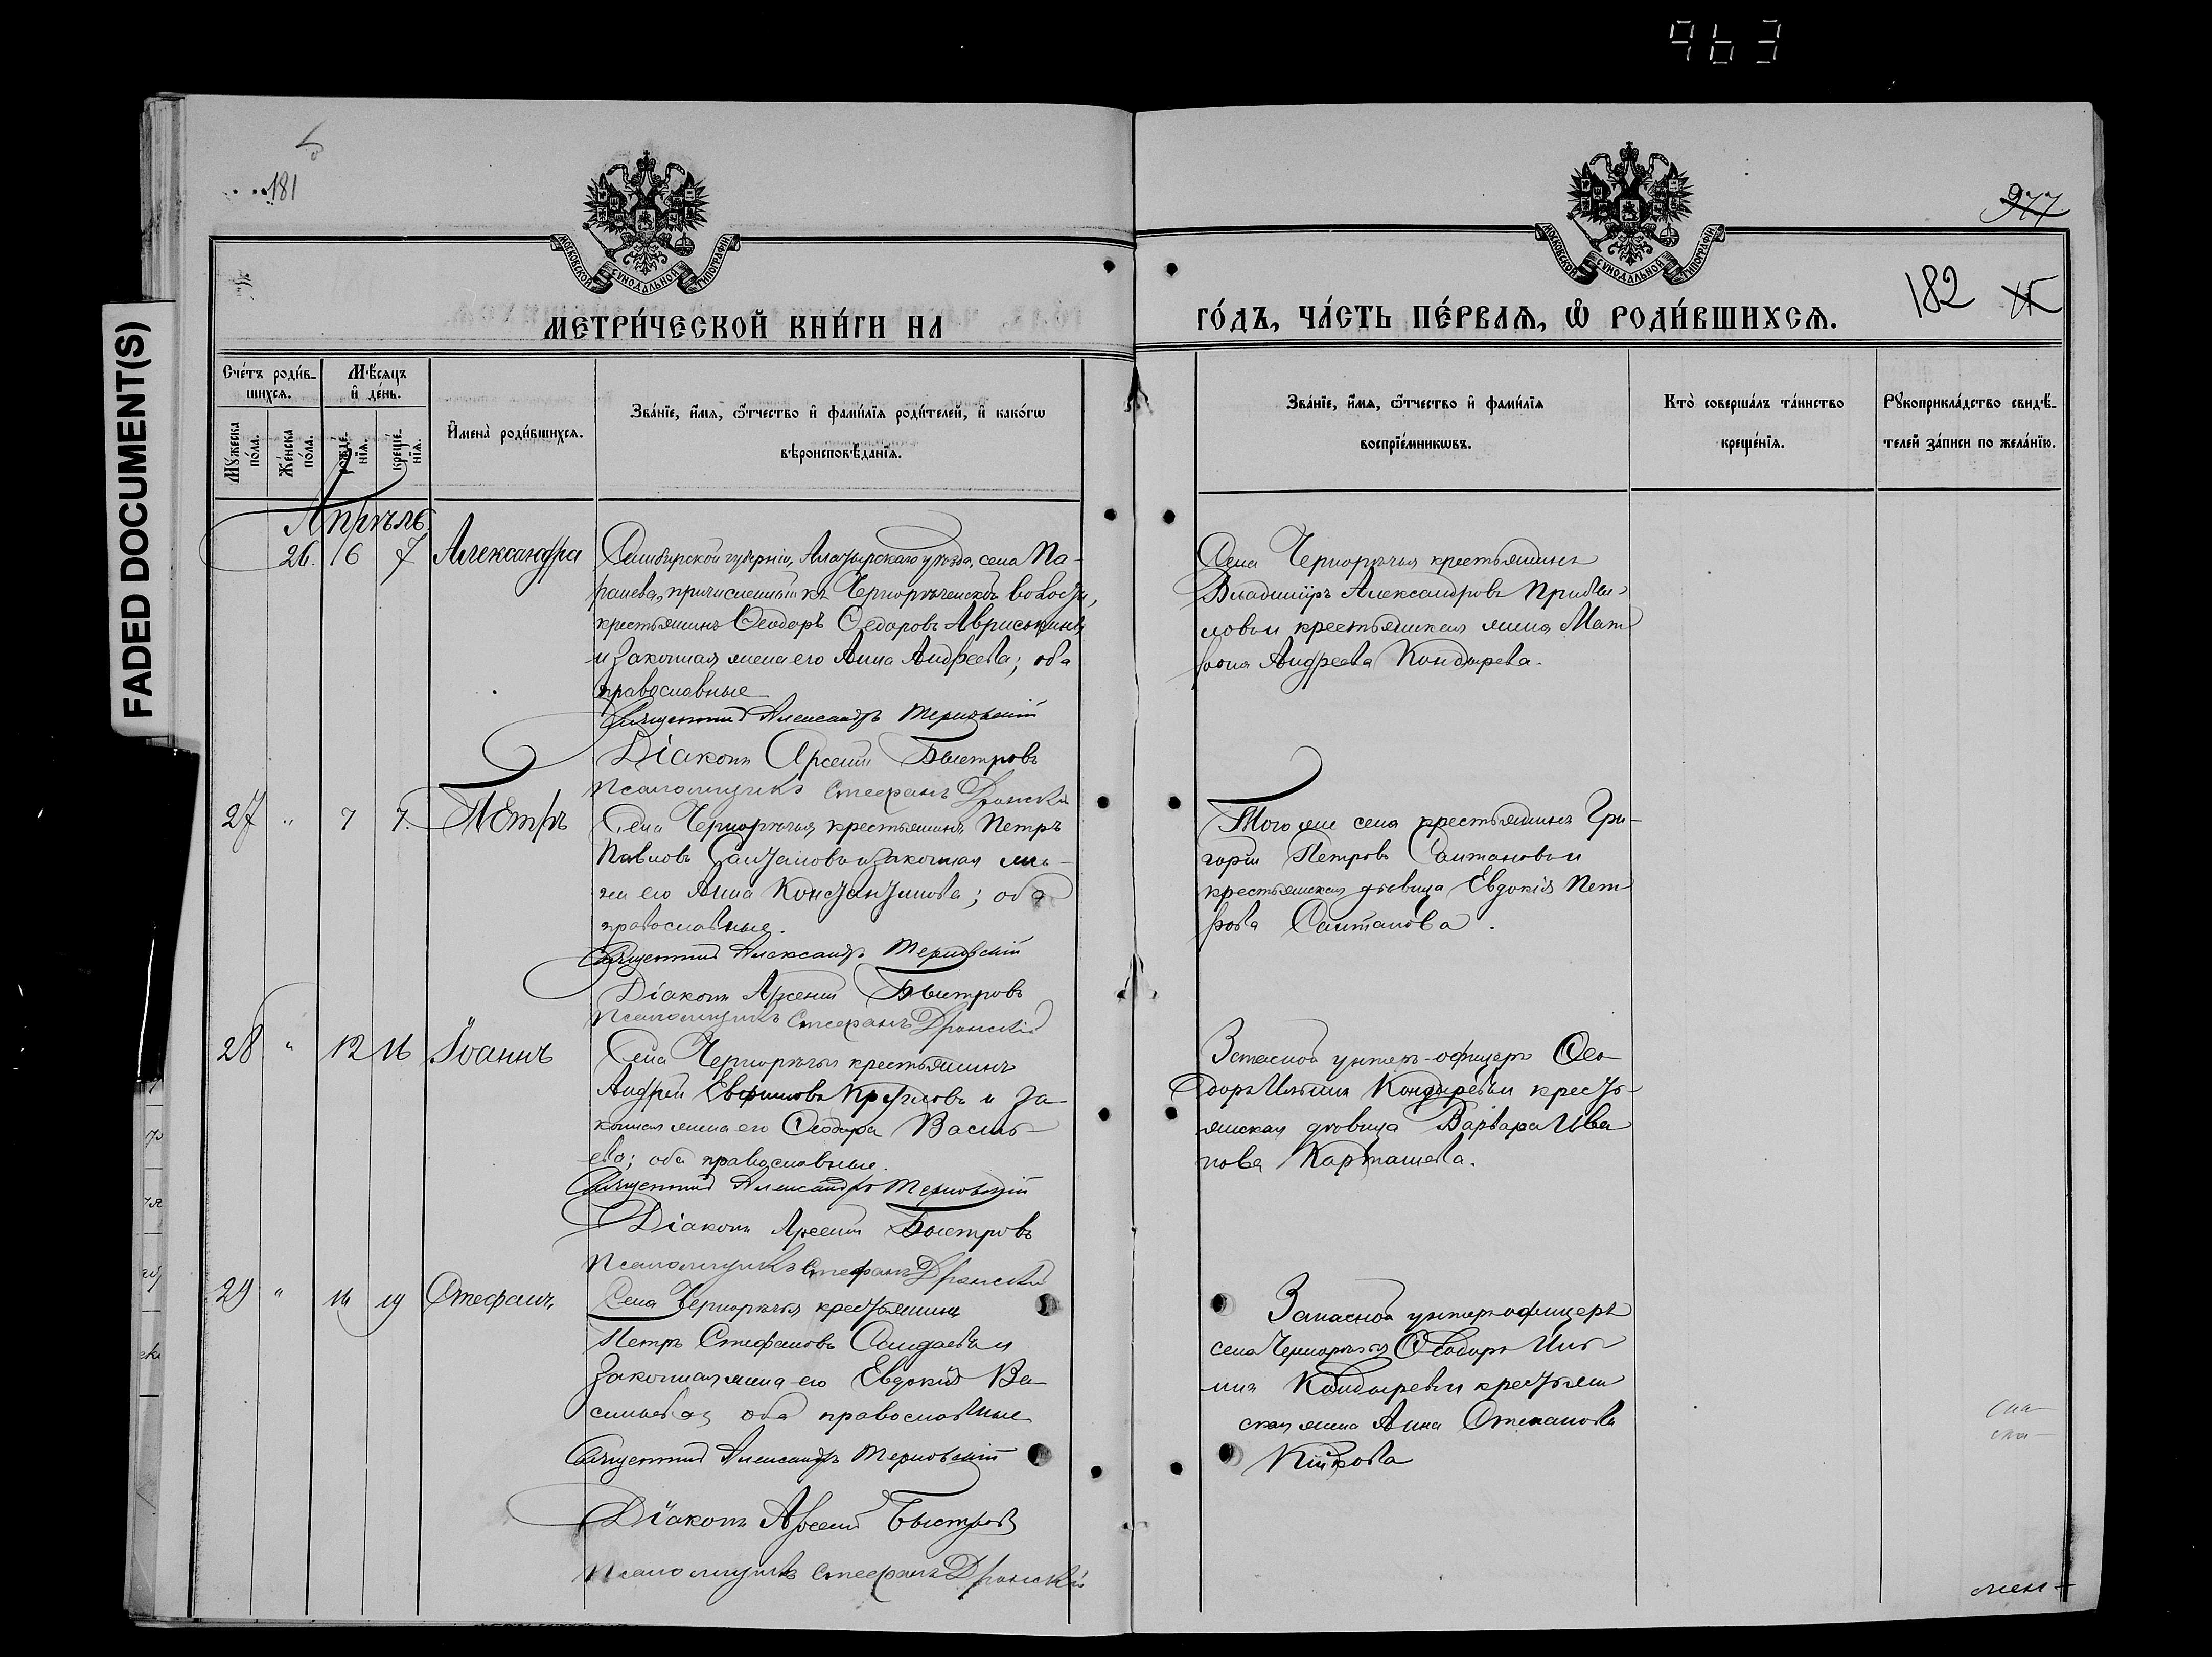 963
FADED DOCUMENT(S)
181
977
182
МОСКОВСКОЙ СѴНОДАЛЬНОЙ ТИПОГРАФІИ
МОСКОВСКОЙ СѴНОДАЛЬНОЙ ТИПОГРАФІИ
МЕТРИ́ЧЕСКОЙ КНИ́ГИ НА
ГО́ДЪ, ЧА́СТЬ ПЕ́РВАѦ, Ѽ РОДИ́ВШИХСѦ.
Сче́тъ роди́в-
шихсѧ.
Мѣ́сѧцъ
и҆ де́нь.
Мꙋ́жеска
по́ла.
Же́нска
по́ла.
рожде́-
нїѧ.
креще́-
нїѧ.
И҆мена̀ роди́вшихсѧ.
Зва́нїе, и҆́мѧ, ѻ҆́тчество и҆ фами́лїѧ роди́телей, и҆ како́гѡ
вѣроисповѣ́данїѧ.
Зва́нїе, и҆́мѧ, ѻ҆́тчество и҆ фами́лїѧ
воспрїе́мникѡвъ.
Кто̀ соверша́лъ та́инство
креще́нїѧ.
Рꙋкоприкла́дство свидѣ́-
телей за́писи по жела́нїю.
Апрѣль
26. 6 7 Александра
Симбирской губерніи, Алатырскаго уѣзда, села Па-
ранева, причисленный къ Чернорѣченской волости,
крестьянинъ Ѳеодоръ Ѳедоровъ Авриськинъ
и законная жена его Анна Андреева; оба
православные
Священникъ Александръ Терновскій
Діаконъ Арсеній Быстровъ
Псаломщикъ Стефанъ Дронскій
Села Чернорѣчья крестьянинъ
Владиміръ Александровъ
и крестьянская жена Мат
рона Андреева Кондырева.
27 " 7 7. Петръ
Села Чернорѣчья крестьянинъ Петръ
Павловъ Салтановъ и законная же-
на его Анна Константинова; оба
православные.
Священникъ Александръ Терновскій
Діаконъ Арсеній Быстровъ
Псаломщикъ Стефанъ Дронскій
Того же села крестьянинъ Гри-
горій Петровъ Салтановъ и
крестьянская дѣвица Евдокія Пет
рова Салтанова.
28 " 12 16 Іоаннъ
Села Чернорѣчья крестьянинъ
Андрей Евфимовъ Кругловъ и за-
конная жена его Ѳеодора Василь-
ева; оба православные.
Священникъ Александръ Терновскій
Діаконъ Арсеній Быстровъ
Псаломщикъ Стефанъ Дронскій
Запасной унтеръ-офицеръ Ѳео-
доръ Ильинъ Кондыревъ и кресть-
янская дѣвица Варвара Ива
нова Карташева.
29 " 16 19 Стефанъ
Села Чернорѣчья крестьянинъ
Петръ Стефановъ Саидаевъ и
законная жена его Евдокія Ва-
сильева; оба православные
Священникъ Александръ Терновскій
Діаконъ Арсеній Быстровъ
Псаломщикъ Стефанъ Дронскій
Запасной унтеръ-офицеръ
села Чернорѣчья Ѳеодоръ Иль
инъ Кондыревъ и крестьян
ская жена Анна Степанова